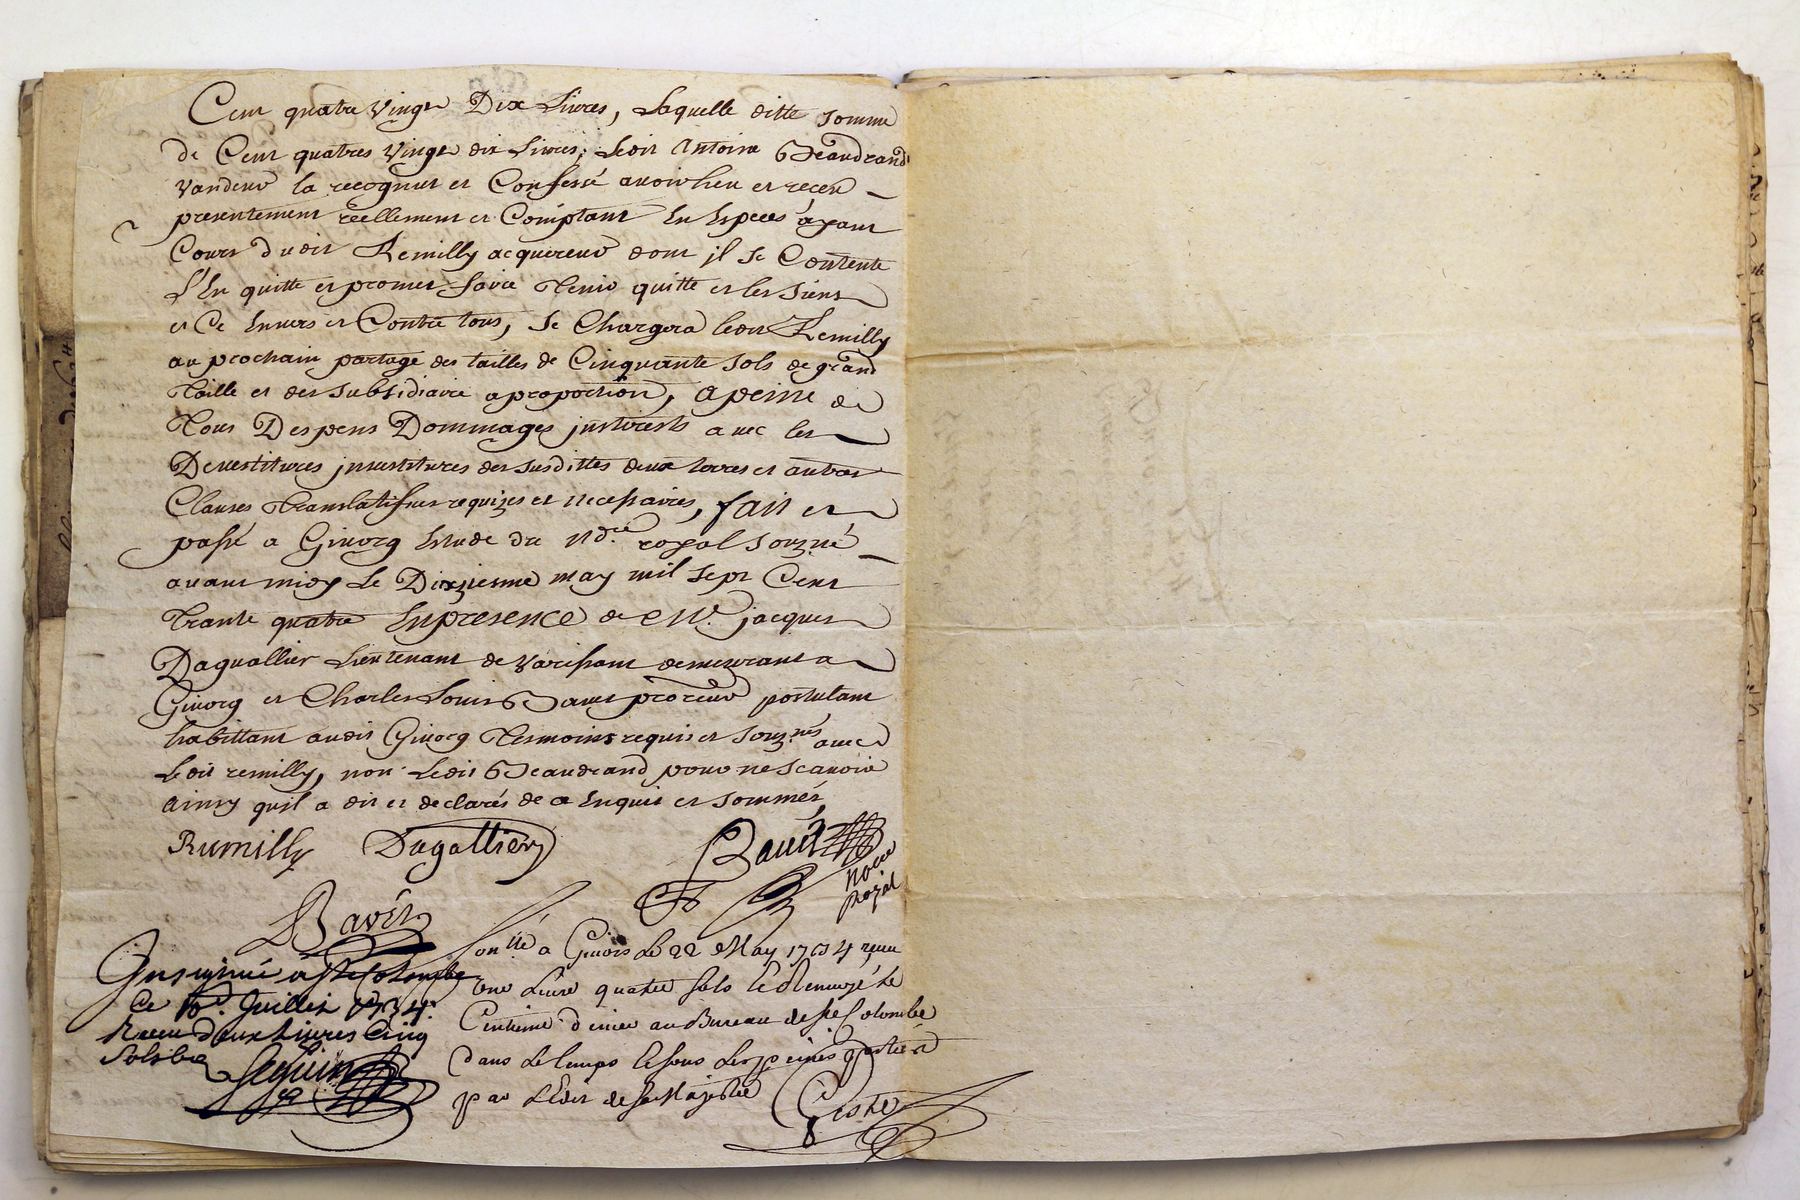 Cent quatre vingt Dix Livres, Laquelle ditte somme
de Cent quatres vingt dix Livres, Ledit Antoine Beaudrand
Vandeur la recognut et Confessé avoir heu et receu
presentement réellement et Comptant En Especes ayant
Cours dudit Remilly acquereur dont jl se Contente
L'En quitte et promet faire Tenir quitte et les siens
et Ce Envers et Contre tous, se Chargera ledit Remilly
au prochain partage des tailles de Cinquante sols de grand
Taille et des subsidiaire a proportion, a peine de
Tous Despens Dommages jnterests avec les
Devestitures jnvestitures des susdittes deux terres et autres
Clauses Translatifves requizes et necessaires, fait et
passé a Givorg Etude du nore royal souzné
avant midy Le Dixziesme may mil sept Cent
Trante quatre En presence de Mr. jacques
Daguallier Lieutenant de Varissant demeurant a
Givorg et Charles Louis Bavet procreur postulant
habittant audit Givorg Tesmoins requis et souznés avec
Ledit remilly, non Ledit Beaudrand pour ne scavoir
ainsy qu'il a dit et declarés de ce Enquis et sommés,
Rumilly Dagallier Bavet
nore
Royal
Bavet
Con llé a Givors Le 22 May 1734 receu
une Livre quatre sols et Renvoyé Le
Centieme denier au Bureau de Ste Colombe
dans Le temps et sous Les peines portées
par L'Edit de sa Majesté
Coste
Jnsignué a Ste Colombe
Ce Juillet 1734.
Receu deux Livres Cinq
sols
Seguin